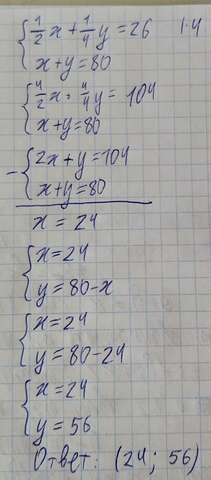 1/2 x + 1/4 y = 26 | · 4
x + y = 80
4/2 x + 4/4 y = 104
x + y = 80
- 2x + y = 104
x + y = 80
x = 24
x = 24
y = 80 - x
x = 24
y = 80 - 24
x = 24
y = 56
Ответ: (24; 56)